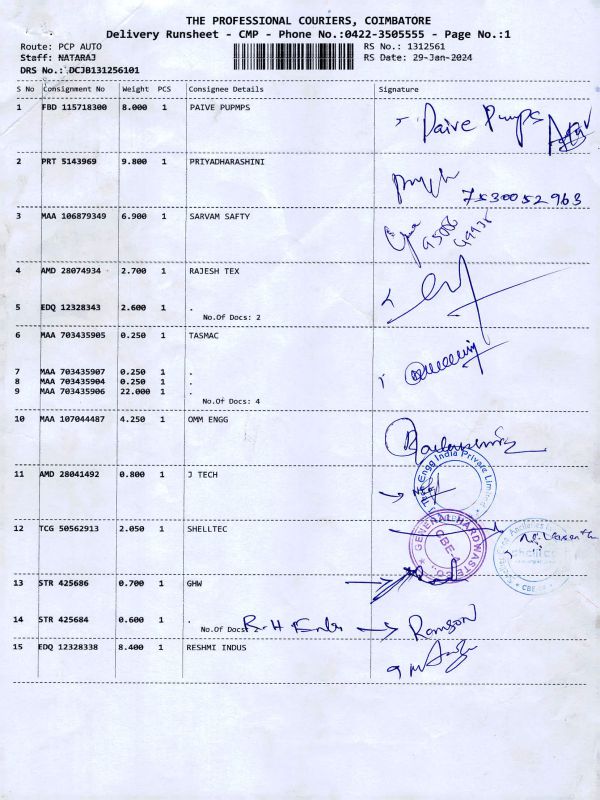 THE PROFESSIONAL COURIERS, COIMBATORE
Delivery Runsheet - CMP - Phone No.:0422-3505555 - Page No.:1
Route: PCP AUTO RS No.: 1312561
Staff: NATARAJ RS Date: 29-Jan-2024
DRS No.: DCJB131256101
S No Consignment No Weight PCS Consignee Details Signature
1 FBD 115718300 8.000 1 PAIVE PUPMPS
Paive Pumps
2 PRT 5143969 9.800 1 PRIYADHARASHINI
7530052963
3 MAA 106879349 6.900 1 SARVAM SAFTY
4 AMD 28074934 2.700 1 RAJESH TEX
5 EDQ 12328343 2.600 1 .
No.Of Docs: 2
6 MAA 703435905 0.250 1 TASMAC
7 MAA 703435907 0.250 1 .
8 MAA 703435904 0.250 1 .
9 MAA 703435906 22.000 1 .
No.Of Docs: 4
10 MAA 107044487 4.250 1 OMM ENGG
11 AMD 28041492 0.800 1 J TECH
Engg India Private Limited
12 TCG 50562913 2.050 1 SHELLTEC
GENERAL HARDWASTE CO.
CBE-4
13 STR 425686 0.700 1 GHW
14 STR 425684 0.600 1 .
No.Of Docs: 2
Ramson
15 EDQ 12328338 8.400 1 RESHMI INDUS